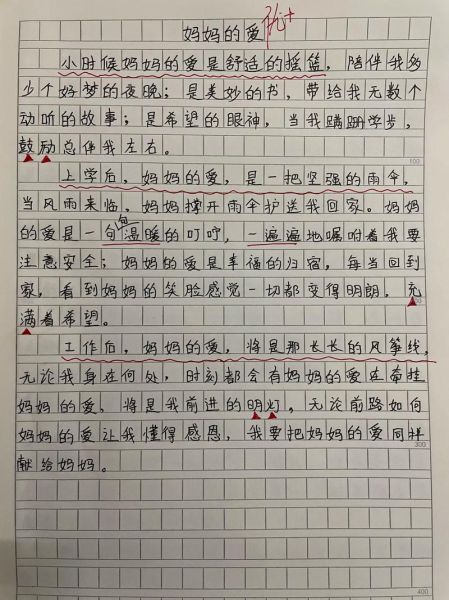 妈妈的爱 优+
小时候妈妈的爱是舒适的摇篮，陪伴我多
少个好梦的夜晚；是美妙的书，带给我无数个
动听的故事；是希望的眼神，当我蹒跚学步，
鼓励总伴我左右。
100
上学后，妈妈的爱，是一把坚强的雨伞，
当风雨来临，妈妈撑开雨伞护送我回家。妈妈
的爱是一句句温暖的叮咛，一遍遍地嘱咐着我要
注意安全；妈妈的爱是幸福的归宿，每当回到
家，看到妈妈的笑脸感觉一切都变得明朗，充
满着希望。
工作后，妈妈的爱，将是那长长的风筝线，
无论我身在何处，时刻都会有妈妈的爱在牵挂
妈妈的爱，将是我前进的明灯。无论前路如何
妈妈的爱让我懂得感恩，我要把妈妈的爱同样
300
献给妈妈。
400